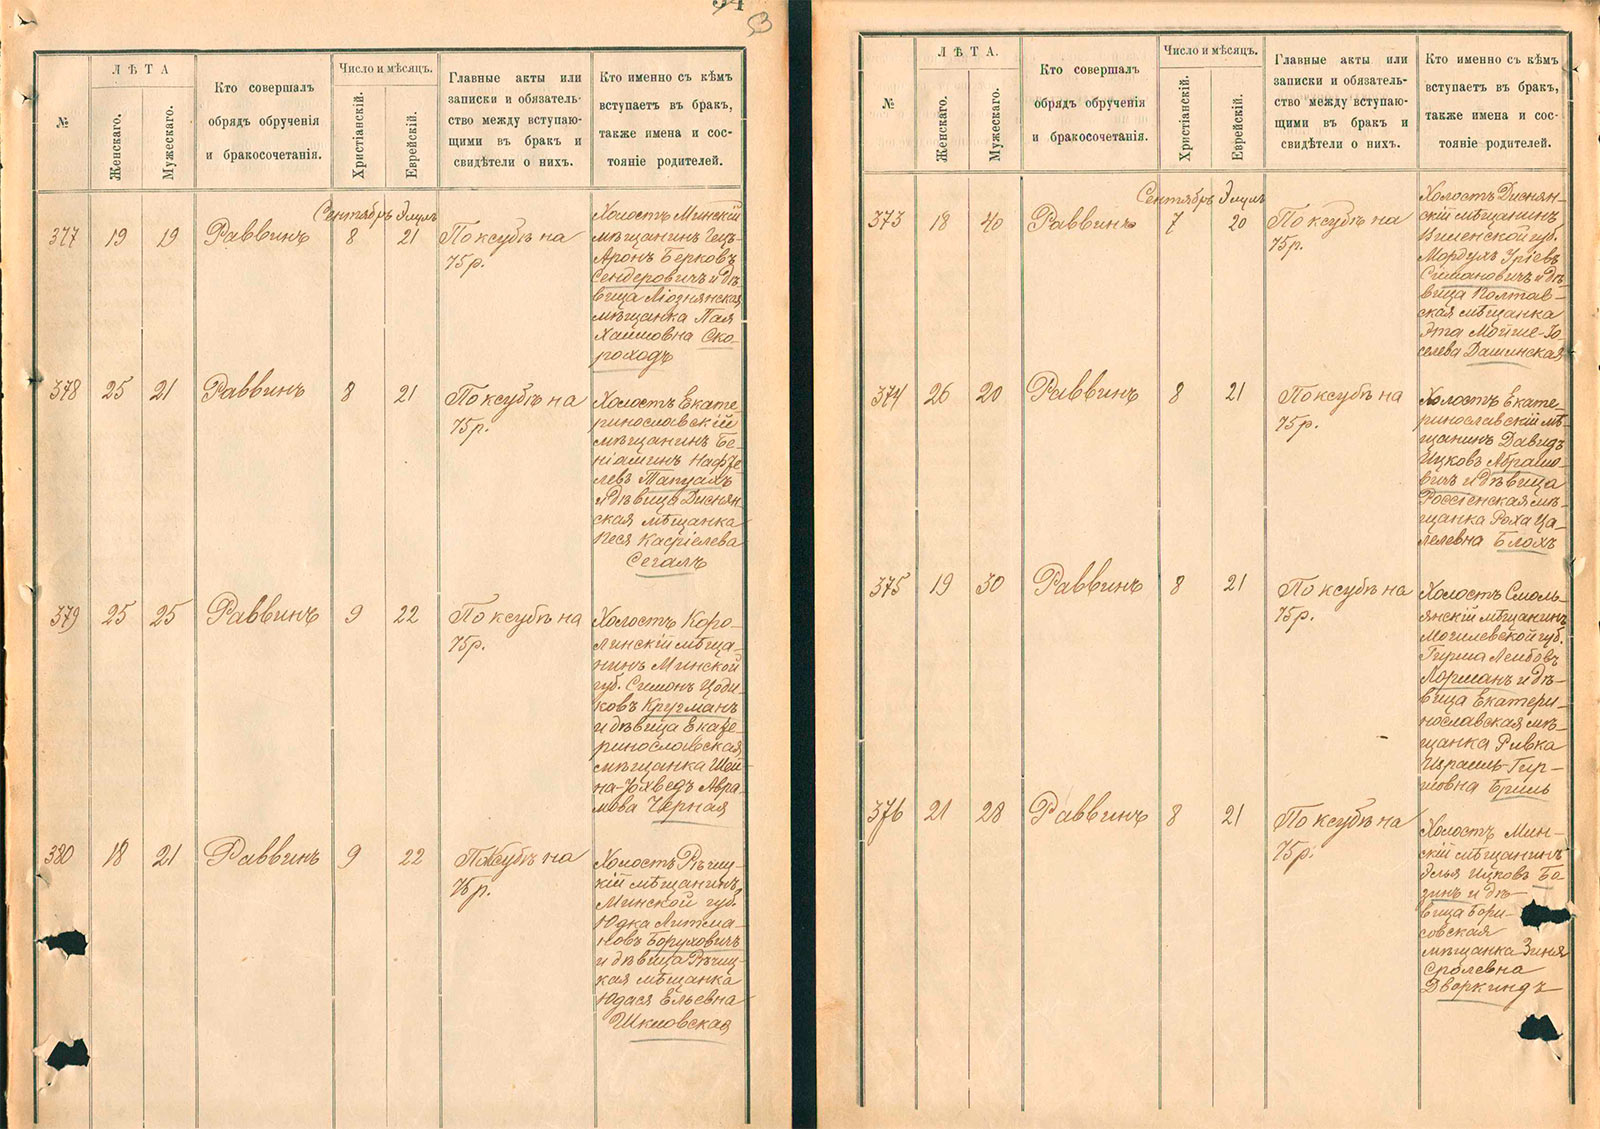 53
№
ЛѢТА
Женскаго.
Мужескаго.
Кто совершалъ
обрядъ обрученія
и бракосочетанія.
Число и мѣсяцъ.
Христіанскій.
Еврейскій.
Главные акты или
записки и обязатель-
ство между вступаю-
щими въ бракъ и
свидѣтели о нихъ.
Кто именно съ кѣмъ
вступаетъ въ бракъ,
также имена и сос-
тояніе родителей.
377 19 19 Раввинъ
Сентябрь Элулъ
8 21
По ксубѣ на
75 р.
Холостъ Минскій
мѣщанинъ Гецъ-
Аронъ Берковъ
Сендеровичъ и дѣ-
вица Ліознянская
мѣщанка Пая
Хаимовна Ско-
роходъ
378 25 21 Раввинъ 8 21
По ксубѣ на
75 р.
Холостъ Екате-
ринославскій
мѣщанинъ Бе-
ніаминъ Нафте-
левъ Тапуахъ
и дѣвица Диснян-
ская мѣщанка
Песя Касріелева
Сегалъ
379 25 25 Раввинъ 9 22
По ксубѣ на
75 р.
Холостъ Коро-
линскій мѣща-
нинъ Минской
губ. Симонъ Цоди-
ковъ Кругманъ
и дѣвица Екате-
ринославская
мѣщанка Шей-
на-Юхведъ Авра-
мова Черная
380 18 21 Раввинъ 9 22
По ксубѣ на
75 р.
Холостъ Рѣчиц-
кій мѣщанинъ
Минской губ.
Юдка Литма-
новъ Боруховичъ
и дѣвица Рѣчиц-
кая мѣщанка
Юдася Ельевна
Шкловская
№
ЛѢТА.
Женскаго.
Мужескаго.
Кто совершалъ
обрядъ обрученія
и бракосочетанія.
Число и мѣсяцъ.
Христіанскій.
Еврейскій.
Главные акты или
записки и обязатель-
ство между вступаю-
щими въ бракъ и
свидѣтели о нихъ.
Кто именно съ кѣмъ
вступаетъ въ бракъ,
также имена и сос-
тояніе родителей.
373 18 40 Раввинъ
Сентябрь Элулъ
7 20
По ксубѣ на
75 р.
Холостъ Диснян-
скій мѣщанинъ
Виленской губ.
Мордухъ Уріевъ
Симановичъ и дѣ-
вица Полтав-
ская мѣщанка
Эта Мойше-Іо-
селева Дашинская
374 26 20 Раввинъ 8 21
По ксубѣ на
75 р.
Холостъ Екате-
ринославскій мѣ-
щанинъ Давидъ
Ицковъ Абрамо-
вичъ и дѣвица
Россіенская мѣ-
щанка Роха Ца-
лелевна Блохъ
375 19 30 Раввинъ 8 21
По ксубѣ на
75 р.
Холостъ Смоль-
янскій мѣщанинъ
Могилевской губ.
Гирша Лейбовъ
Лорманъ и дѣ-
вица Екатери-
нославская мѣ-
щанка Ривка
Израиль-Гир-
шовна Бриль
376 21 28 Раввинъ 8 21
По ксубѣ на
75 р.
Холостъ Мин-
скій мѣщанинъ
Элья Ицковъ Ба-
зинъ и дѣ-
вица Бори-
совская
мѣщанка Зиня
Сролевна
Дворкиндъ